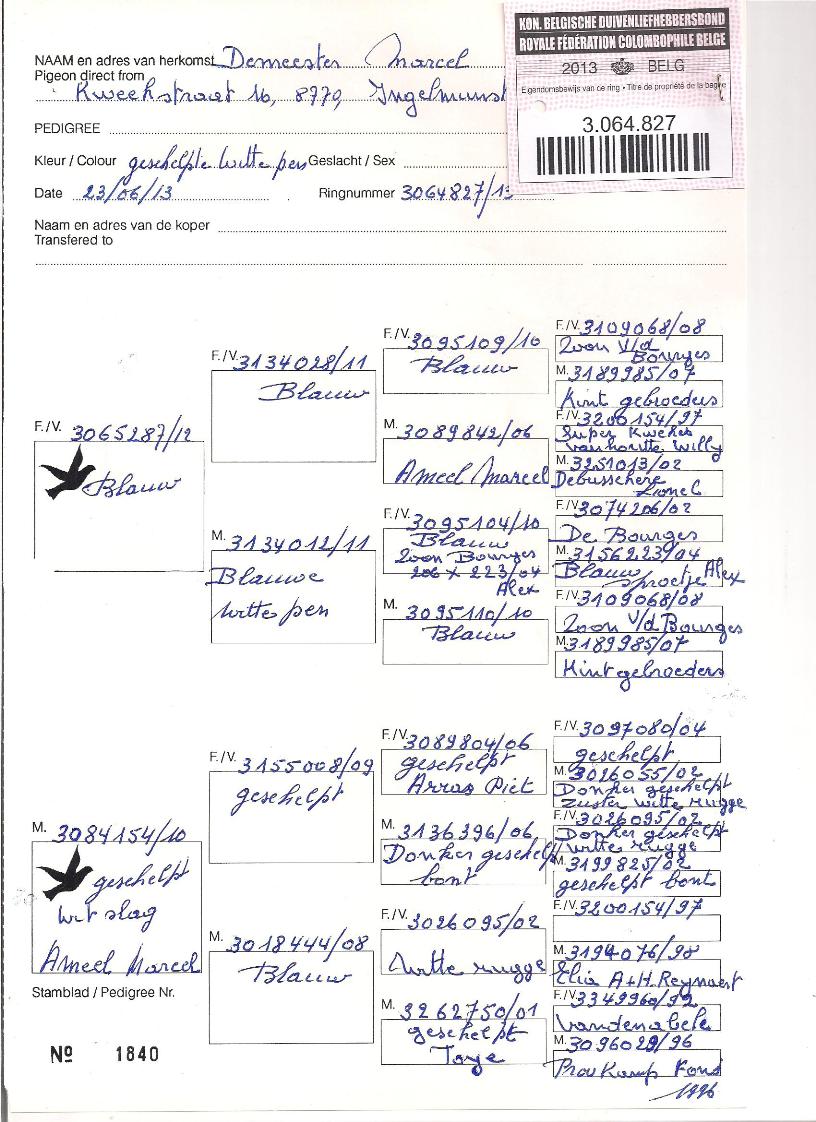 KON. BELGISCHE DUIVENLIEFHEBBERSBOND
ROYALE FÉDÉRATION COLOMBOPHILE BELGE
2013 BELG
Eigendomsbewijs van de ring • Titre de propriété de la bague
3.064.827
NAAM en adres van herkomst Demeester Marcel
Pigeon direct from
Kweekstraat 16, 8770, Ingelmunst
PEDIGREE
Kleur / Colour geschelpte witte pen Geslacht / Sex
Date 23/06/13 Ringnummer 3064827/13
Naam en adres van de koper
Transfered to
F./V. 3065287/12
Blauw
F./V. 3134028/11
Blauw
M. 3134012/11
Blauwe
witte pen
F./V. 3095109/10
Blauw
M. 3089842/06
Ameel Marcel
F./V. 3095104/10
Blauw
Zoon Bourges
206 x 223/04
Alex
M. 3095110/10
Blauw
F./V. 3109068/08
Zoon v/d
Bourges
M. 3189985/07
Kint gebroeders
F./V. 3200154/97
Super Kweker
vanhoutte Willy
M. 3251013/02
Debusschere
Lionel
F./V. 3074206/02
De Bourges
M. 3156223/04
Blauw sproetje Alex
F./V. 3109068/08
Zoon v/d Bourges
M. 3189985/07
Kint gebroeders
M. 3084154/10
geschelpt
wit slag
Ameel Marcel
F./V. 3155008/09
geschelpt
M. 3018444/08
Blauw
F./V. 3089804/06
geschelpt
Arras Piet
M. 3136396/06
Donker geschelpt
bont
F./V. 3026095/02
Witte rugge
M. 3262750/01
geschelpt
Toye
F./V. 3097080/04
geschelpt
M. 3026055/02
Donker geschelpt
Zuster witte rugge
F./V. 3026095/02
Donker geschelpt
witte rugge
M. 3199825/02
geschelpt bont
F./V. 3200154/97
M. 3194076/98
Elia A+H. Reynaert
F./V. 3349960/92
Vandenabele
M. 3096029/96
Prov Kamp Fond
1996
Stamblad / Pedigree Nr.
Nº 1840